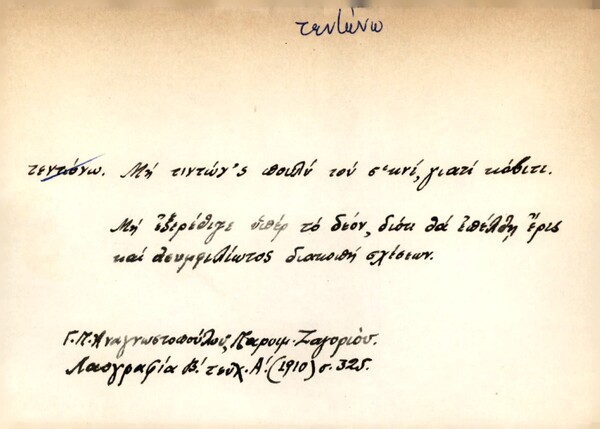 τεντώνω
τεντώνω. Μή τιντών'ς πουλύ τού σ'κνί, γιατί κόβιτι.
Μή ἐξερέθιζε ὑπέρ τό δεόν, διότι θά ἐπέλθῃ ἔρις
καί ἀσυμφιλίωτος διακοπή σχέσεων.
Γ. Π. Ἀναγνωστοπούλου, Παροιμ. Ζαγορίου.
Λαογραφία Β΄. τευχ. Α΄. (1910) σ. 325.